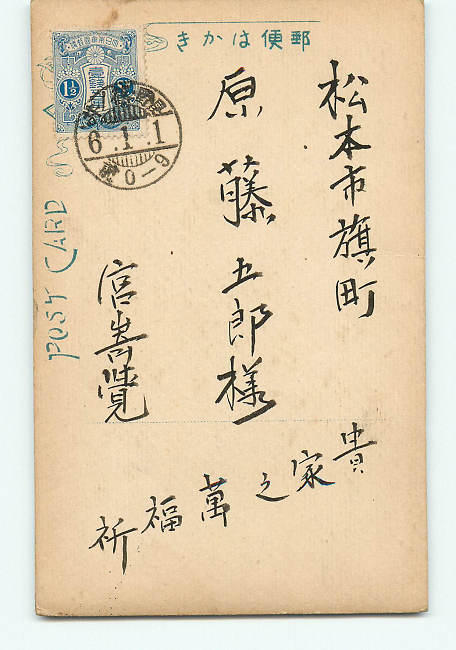 郵便はかき
1½
6.1.1
松本市旗町
原藤五郎様
貴家之萬福祈
POST CARD